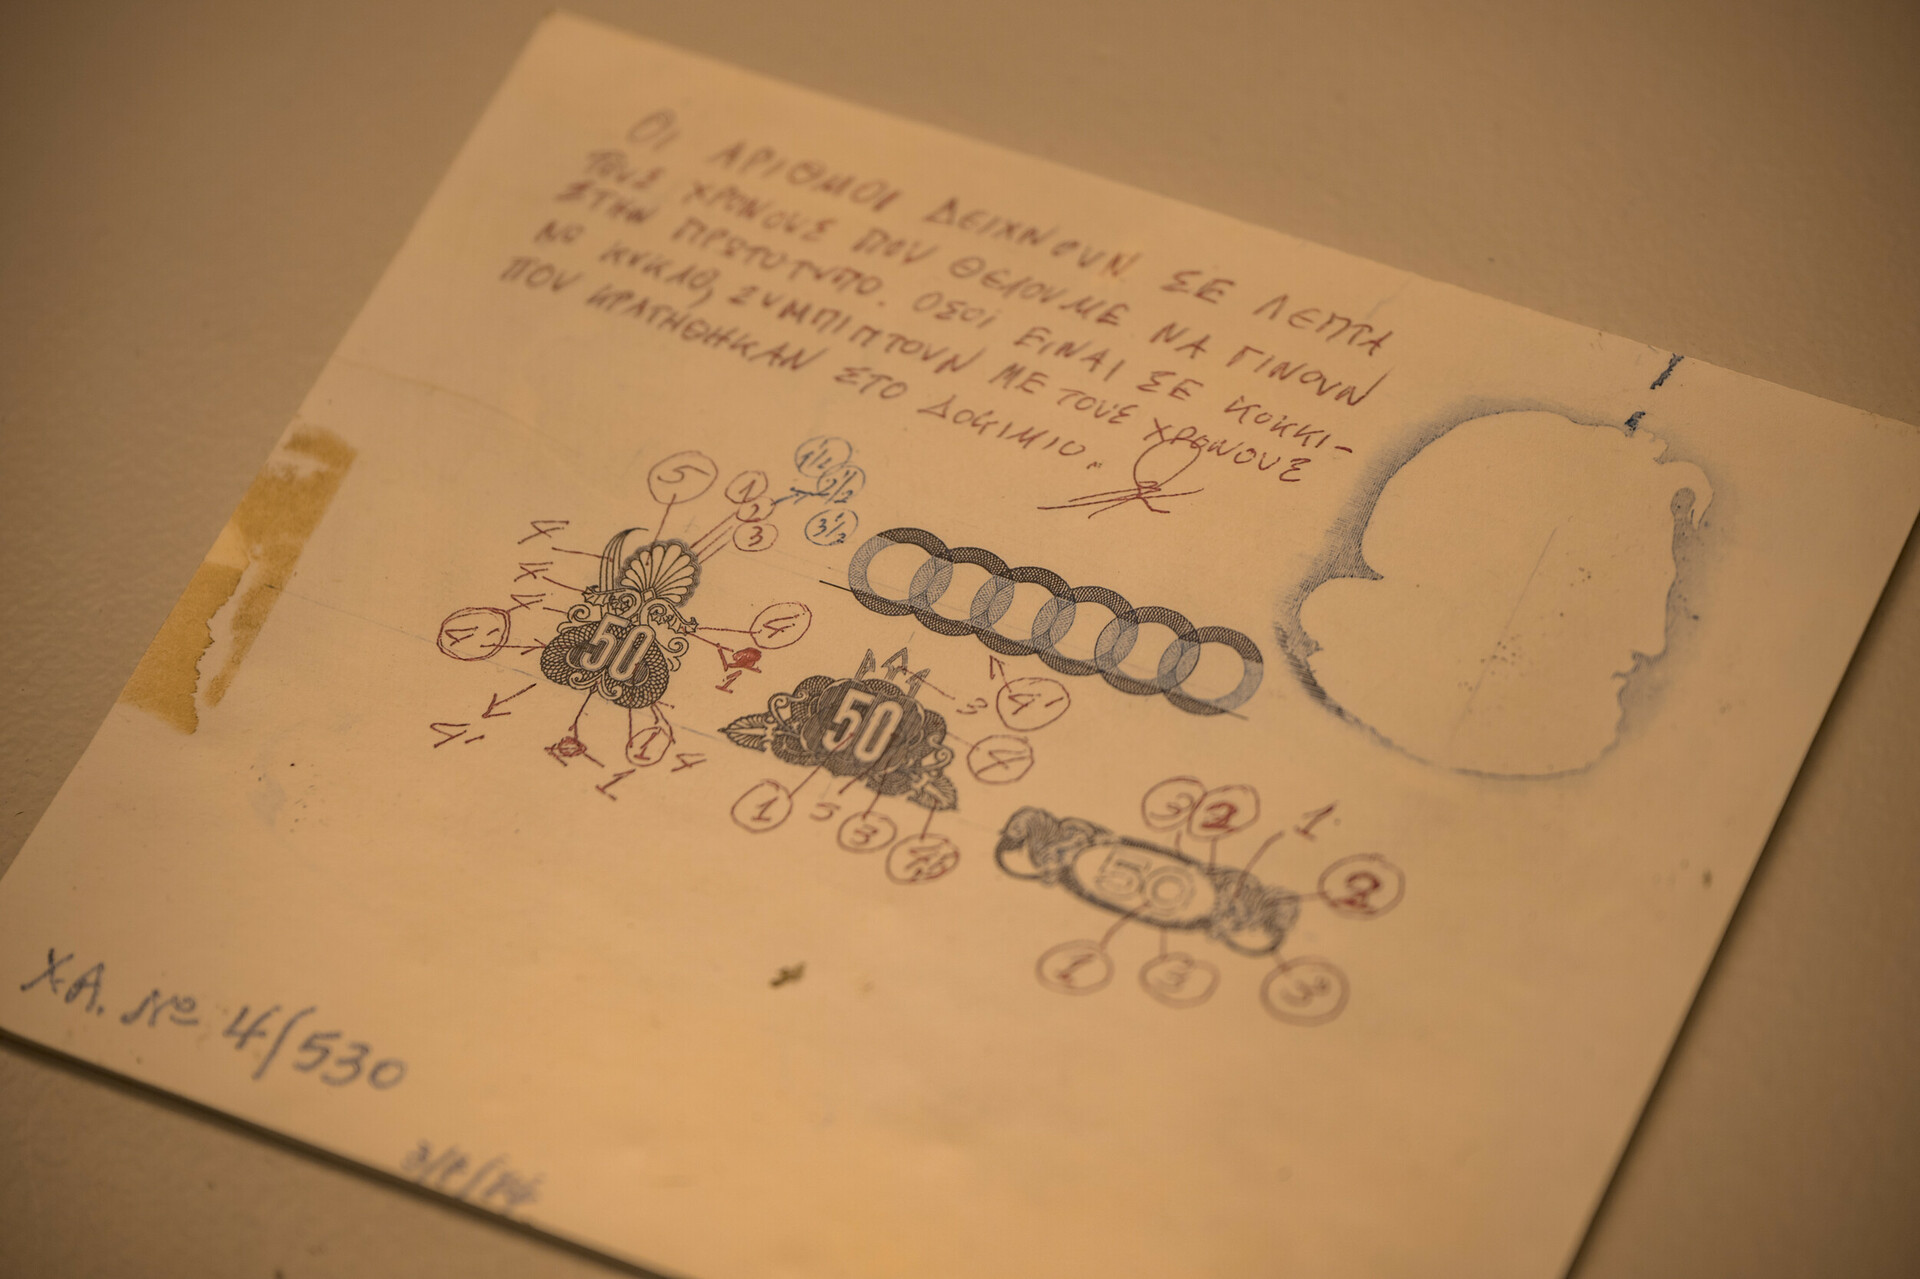 ΟΙ ΑΡΙΘΜΟΙ ΔΕΙΧΝΟΥΝ ΣΕ ΛΕΠΤΑ
ΤΟΥΣ ΧΡΟΝΟΥΣ ΠΟΥ ΘΕΛΟΥΜΕ ΝΑ ΓΙΝΟΥΝ
ΣΤΗΝ ΠΡΩΤΟΤΥΠΟ. ΟΣΟΙ ΕΙΝΑΙ ΣΕ ΚΟΚΚΙ-
ΝΟ ΚΥΚΛΟ, ΣΥΜΠΙΠΤΟΥΝ ΜΕ ΤΟΥΣ ΧΡΟΝΟΥΣ
ΠΟΥ ΚΡΑΤΗΘΗΚΑΝ ΣΤΟ ΔΟΚΙΜΙΟ.
5 1 2 3
3 1/2
4
4
4
4' 50 4
1
4'
1 1 4
50 3 4'
4
1 5 3
3 2 1
50 2
1 3 3
ΧΑ. Νº 4/530